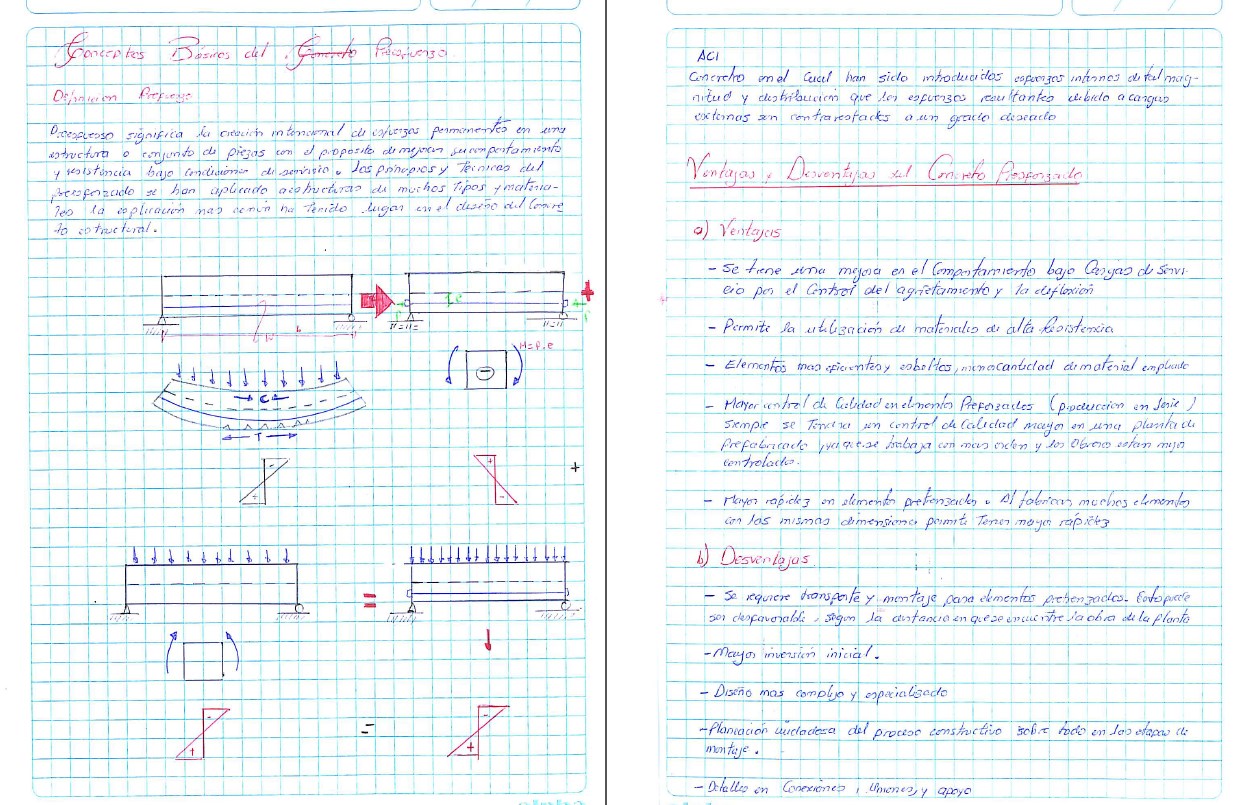 Conceptos Básicos del Concreto Presfuerzo
Definicion Prefuerzo
Preesfuerso significa la creación intencional de esfuerzos permanentes en una
estructura o conjunto de piezas con el proposito de mejorar su comportamiento
y resistencia bajo condiciones de servicio. los principios y Tecnicas del
preesforzado se han aplicado a estructuras de muchos Tipos y materia-
les la explicación mas común ha Tenido lugar en el diseño del Concre
to estructural.
L
P
e
P
M=P.e
C
T
- +
+ -
+
=
- +
=
- +
ACI
Concreto en el Cual han sido introducidos esfuerzos internos de tal mag-
nitud y distribución que los esfuerzos resultantes debido a cargas
externas son contrarestados a un grado deseado
Ventajas y Desventajas del Concreto Presforzado
a) Ventajas
- Se tiene una mejora en el Comportamiento bajo Cargas de Servi-
cio por el Control del agrietamiento y la deflexión
- Permite la utilización de materiales de alta Resistencia
- Elementos mas eficientes y esbeltos, menos cantidad de material empleado
- Mayor control de Calidad en elementos Preforzados (produccion en serie)
Siempre se Tendra un control de Calidad mayor en una planta de
Prefabricado, ya que se trabaja con mas orden y los Obreros estan mejor
controlados.
- Mayor rapidez en elementos preforzados. Al fabricar muchos elementos
con las mismas dimensiones permite Tener mayor rápidez
b) Desventajas
- Se requiere transporte y montaje para elementos preforzados. Esto puede
ser desfavorable, segun la distancia en que se encuentre la obra de la planta
- Mayor inversión inicial.
- Diseño mas complejo y especializado
- Planeación cuidadosa del proceso constructivo sobre todo en las etapas de
montaje.
- Detalles en Conexiones, Uniones, y apoyo